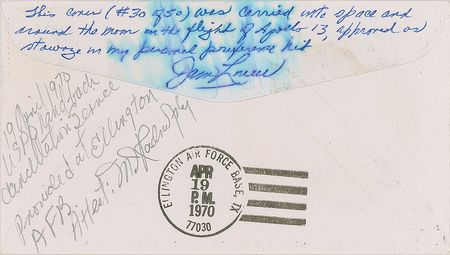 This cover (#30 of 50) was carried into space and
around the moon on the flight of Apollo 13, approved as
stowage in my personal preference kit
Jim Lovell
19 April 1970
USPO
Cancellation Service
Provided at Ellington
AFB
Attest:
ELLINGTON AIR FORCE BASE, TX
APR
19
P.M.
1970
77030